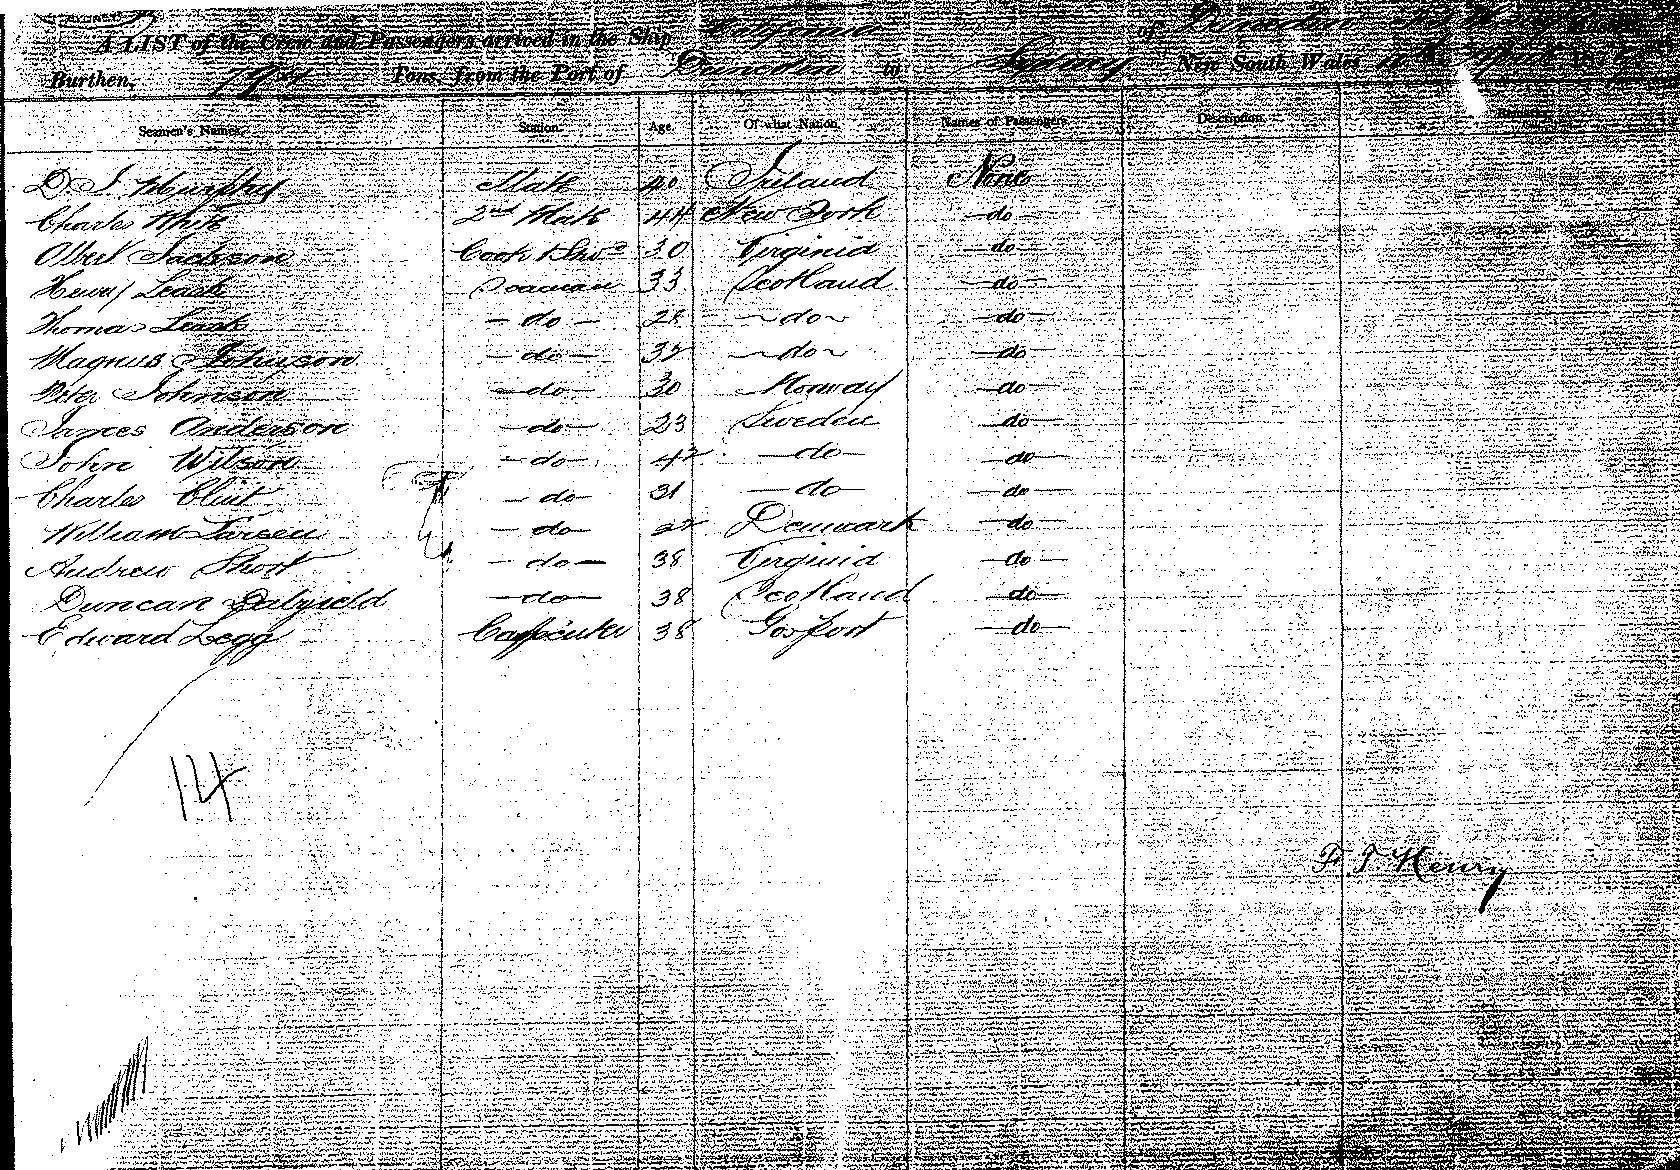 A LIST of the Crew and Passengers arrived in the Ship California of Dunedin
Burthen, Tons, from the Port of Dunedin to Sydney New South Wales
Seamen's Names. Station. Age. Of what Nation. Names of Passengers. Description. Remarks.
D. J. Murphy Mate 40 Ireland None
Charles White 2nd Mate 44 New York - do -
Albert Jackson Cook & Stwd 30 Virginia - do -
Henry Leask Seaman 33 Scotland - do -
Thomas Leask - do - 28 - do - - do -
Magnus Johnson - do - 32 - do - - do -
Peter Johnson - do - 30 Norway - do -
James Anderson - do - 23 Sweden - do -
John Wilson - do - 42 - do - - do -
Charles - do - 31 - do - - do -
William Larsen - do - 22 Denmark - do -
Andrew Short - do - 38 Virginia - do -
Duncan - do - 38 Scotland - do -
Edward Legg Carpenter 38 Gosport - do -
14
F. T. Henry